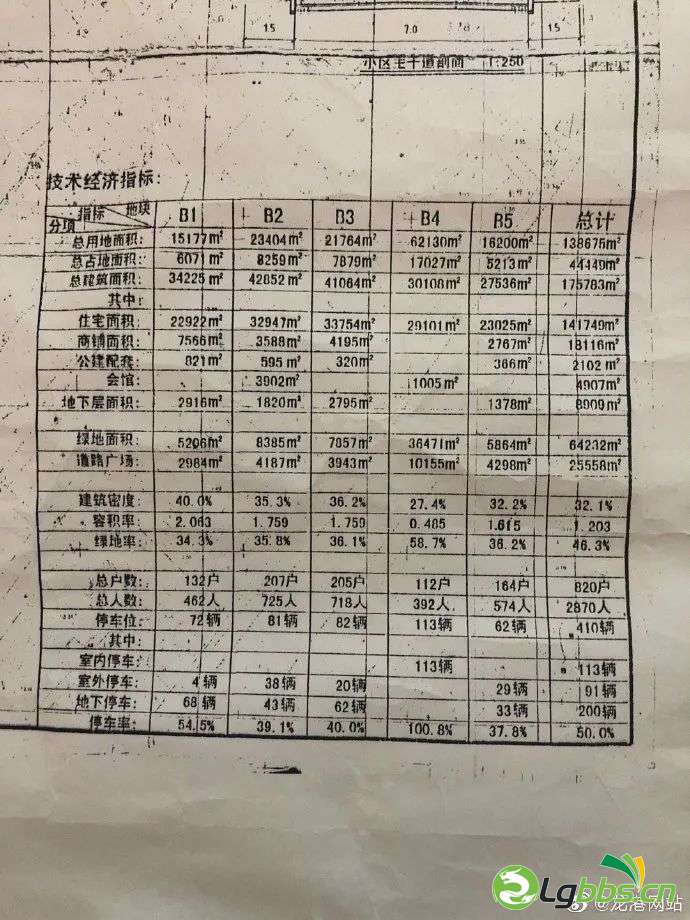 15 7.0 15
小区主干道剖面 1:250
技术经济指标:
指标 地块 分项 B1 B2 B3 B4 B5 总计
总用地面积: 15177m² 23404m² 21764m² 62130m² 16200m² 138675m²
总占地面积: 6071m² 8259m² 7879m² 17027m² 5213m² 44449m²
总建筑面积: 34225m² 42852m² 41064m² 30108m² 27536m² 175783m²
其中:
住宅面积: 22922m² 32947m² 33754m² 29101m² 23025m² 141749m²
商铺面积: 7566m² 3588m² 4195m² 2767m² 18116m²
公建配套: 821m² 595m² 320m² 366m² 2102m²
会馆: 3902m² 1005m² 4907m²
地下层面积: 2916m² 1820m² 2795m² 1378m² 8909m²
绿地面积: 5206m² 8385m² 7857m² 36471m² 5864m² 64232m²
道路广场: 2984m² 4187m² 3943m² 10155m² 4298m² 25558m²
建筑密度: 40.0% 35.3% 36.2% 27.4% 32.2% 32.1%
容积率: 2.063 1.759 1.759 0.485 1.615 1.203
绿地率: 34.3% 35.8% 36.1% 58.7% 36.2% 46.3%
总户数: 132户 207户 205户 112户 164户 820户
总人数: 462人 725人 718人 392人 574人 2870人
停车位: 72辆 81辆 82辆 113辆 62辆 410辆
其中:
室内停车: 113辆 113辆
室外停车: 4辆 38辆 20辆 29辆 91辆
地下停车: 68辆 43辆 62辆 33辆 200辆
停车率: 54.5% 39.1% 40.0% 100.8% 37.8% 50.0%
Lgbbs.cn
@龙港网站